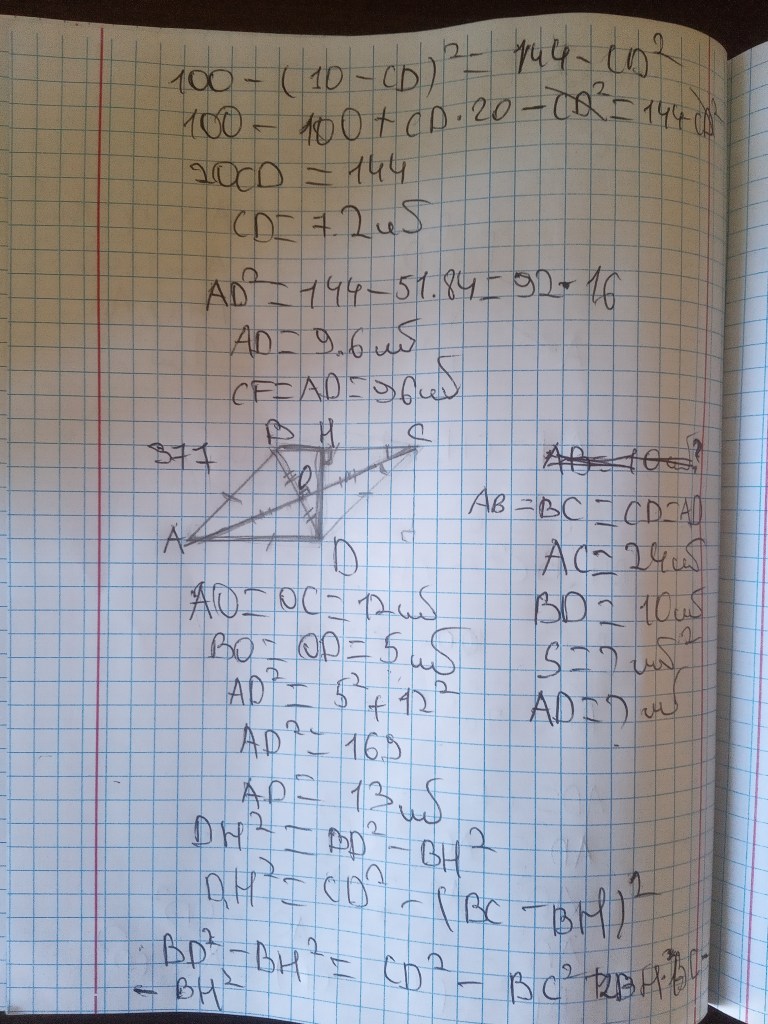 100 - (10 - CD)² = 144 - CD²
100 - 100 + CD · 20 - CD² = 144 - CD²
20CD = 144
CD = 7.2 սմ
AD² = 144 - 51.84 = 92.16
AD = 9.6 սմ
CF = AD = 96 սմ
377
B H C
O
A D
AB = BC = CD = AD
AC = 24 սմ
BD = 10 սմ
S = ? սմ²
AD = ? սմ
AO = OC = 12 սմ
BO = OD = 5 սմ
AD² = 5² + 12²
AD² = 169
AD = 13 սմ
DH² = BD² - BH²
DH² = CD² - (BC - BH)²
BD² - BH² = CD² - BC² + 2BH·BC -
- BH²